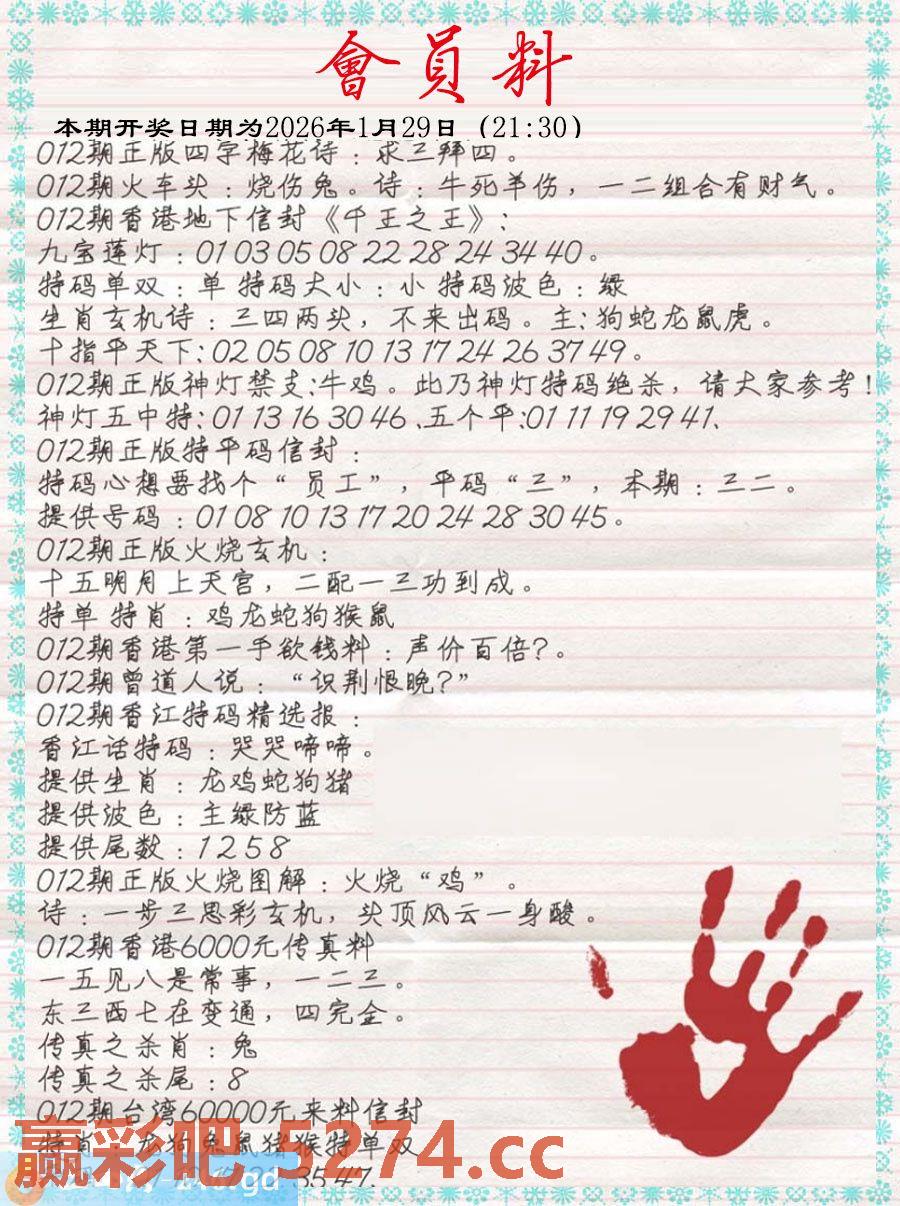 會員料
本期开奖日期为2026年1月29日（21:30）
012期正版四字梅花诗：求三拜四。
012期火车头：烧伤兔。诗：牛死羊伤，一二组合有财气。
012期香港地下信封《千王之王》：
九宝莲灯：01 03 05 08 22 28 24 34 40。
特码单双：单 特码大小：小 特码波色：绿
生肖玄机诗：三四两头，不来出码。主：狗蛇龙鼠虎。
十指平天下：02 05 08 10 13 17 24 26 37 49。
012期正版神灯禁支：牛鸡。此乃神灯特码绝杀，请大家参考！
神灯五中特：01 13 16 30 46 、五个平：01 11 19 29 41、
012期正版特平码信封：
特码心想要找个“员工”，平码“三”，本期：三二。
提供号码：01 08 10 13 17 20 24 28 30 45。
012期正版火烧玄机：
十五明月上天宫，二配一三功到成。
特单 特肖：鸡龙蛇狗猴鼠
012期香港第一手欲钱料：声价百倍？。
012期曾道人说：“识荆恨晚？”
012期香江特码精选报：
香江话特码：哭哭啼啼。
提供生肖：龙鸡蛇狗猪
提供波色：主绿防蓝
提供尾数：1 2 5 8
012期正版火烧图解：火烧“鸡”。
诗：一步三思彩玄机，头顶风云一身酸。
012期香港6000元传真料
一五见八是常事，一二三。
东三西七在变通，四完金。
传真之杀肖：兔
传真之杀尾：8
012期台湾60000元来料信封
特肖：龙狗兔鼠猪猴特单双
35 47.
赢彩吧.5274.cc